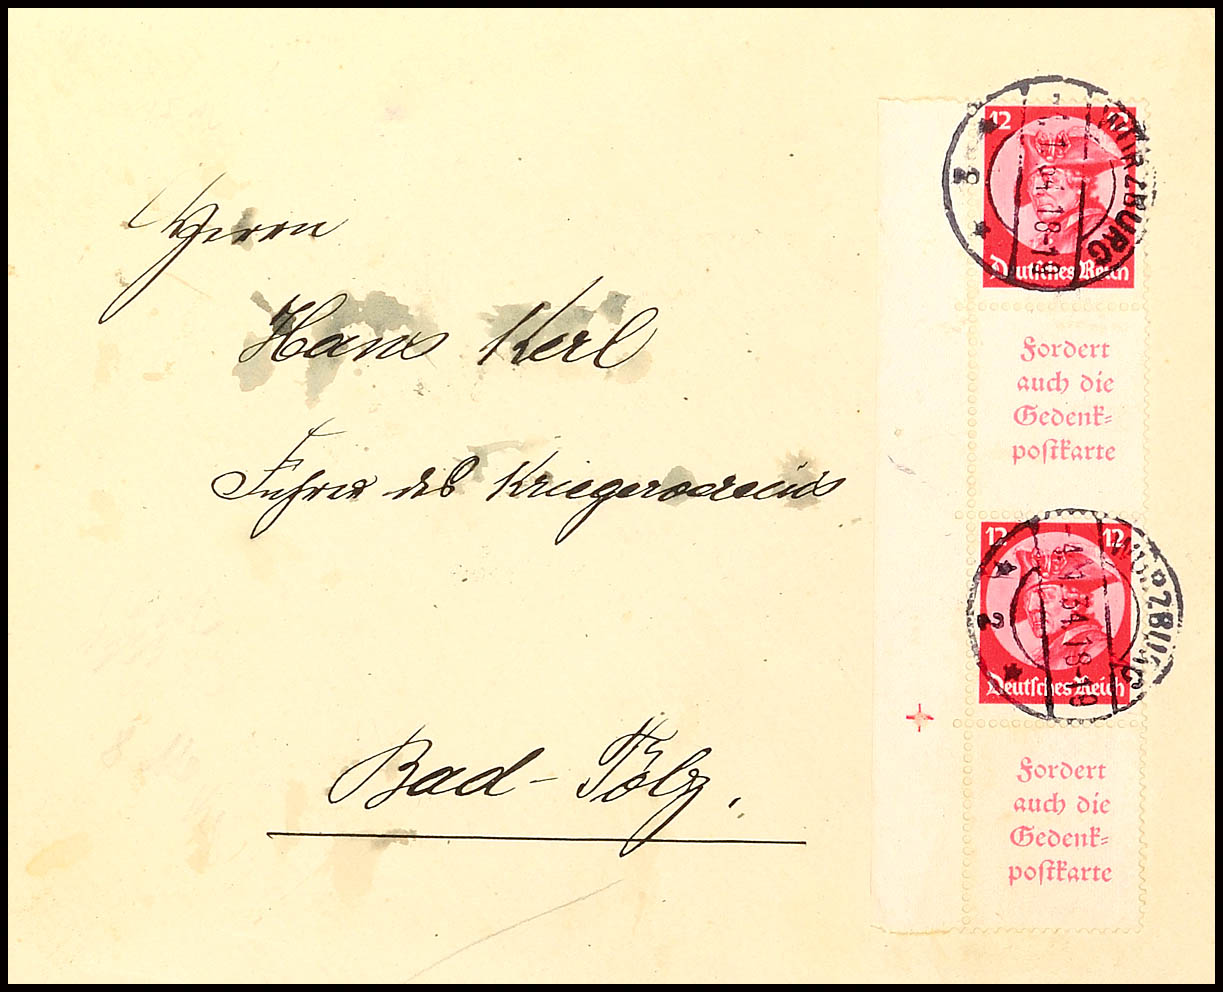 Herrn
Hans Kerl
Führer des Kriegervereins
Bad-Tölz.
12
WÜRZBURG
3
34.18-19
Deutsches Reich
Fordert
auch die
Gedenk=
postkarte
12 12
WÜRZBURG
2
34.18-19
Deutsches Reich
Fordert
auch die
Gedenk=
postkarte